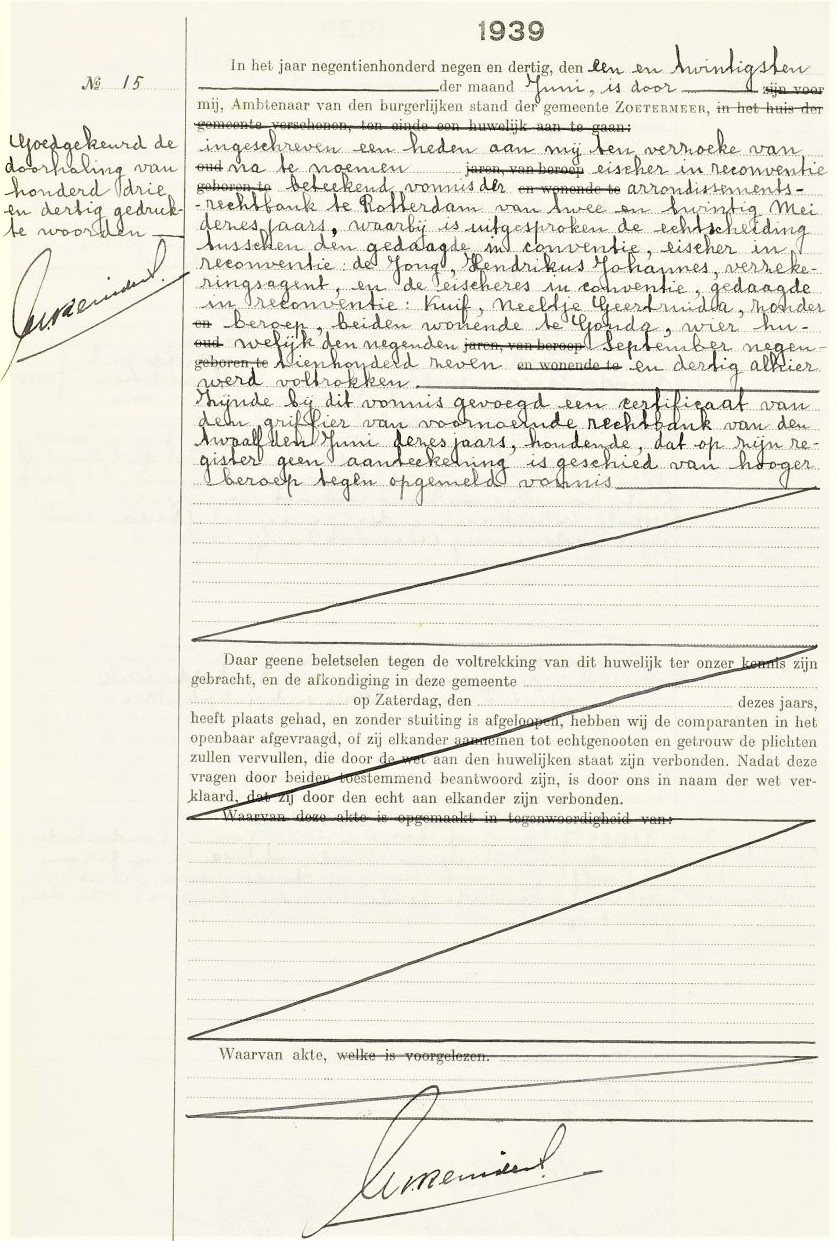 1939
In het jaar negentienhonderd negen en dertig, den een en twintigsten
Nº 15
der maand Juni, is door zijn voor
mij, Ambtenaar van den burgerlijken stand der gemeente ZOETERMEER, in het huis der
gemeente verschenen, ten einde een huwelijk aan te gaan:
Goedgekeurd de
doorhaling van
honderd drie
en dertig gedruk-
te woorden
ingeschreven een heden aan mij ten verzoeke van
oud na te noemen jaren, van beroep eischer in reconventie
geboren te beteekend vonnis der en wonende te arrondissements-
-rechtbank te Rotterdam van twee en twintig Mei
dezes jaars, waarbij is uitgesproken de echtscheiding
tusschen den gedaagde in conventie, eischer in
reconventie: de Jong, Hendrikus Johannes, verzeke-
ringsagent, en de eischeres in conventie, gedaagde
in reconventie: Kuif, Neeltje Geertruida, zonder
en beroep, beiden wonende te Gouda, wier hu-
oud welijk den negenden jaren, van beroep September negen-
geboren te tienhonderd zeven en wonende te en dertig alhier
werd voltrokken.
Zijnde bij dit vonnis gevoegd een certificaat van
den griffier van voornoemde rechtbank van den
twaalfden Juni dezes jaars, houdende, dat op zijn re-
gister geen aanteekening is geschied van hooger
beroep tegen opgemeld vonnis
Daar geene beletselen tegen de voltrekking van dit huwelijk ter onzer kennis zijn
gebracht, en de afkondiging in deze gemeente
op Zaterdag, den dezes jaars,
heeft plaats gehad, en zonder stuiting is afgeloopen, hebben wij de comparanten in het
openbaar afgevraagd, of zij elkander aannemen tot echtgenooten en getrouw de plichten
zullen vervullen, die door de wet aan den huwelijken staat zijn verbonden. Nadat deze
vragen door beiden toestemmend beantwoord zijn, is door ons in naam der wet ver-
klaard, dat zij door den echt aan elkander zijn verbonden.
Waarvan deze akte is opgemaakt in tegenwoordigheid van:
Waarvan akte, welke is voorgelezen.